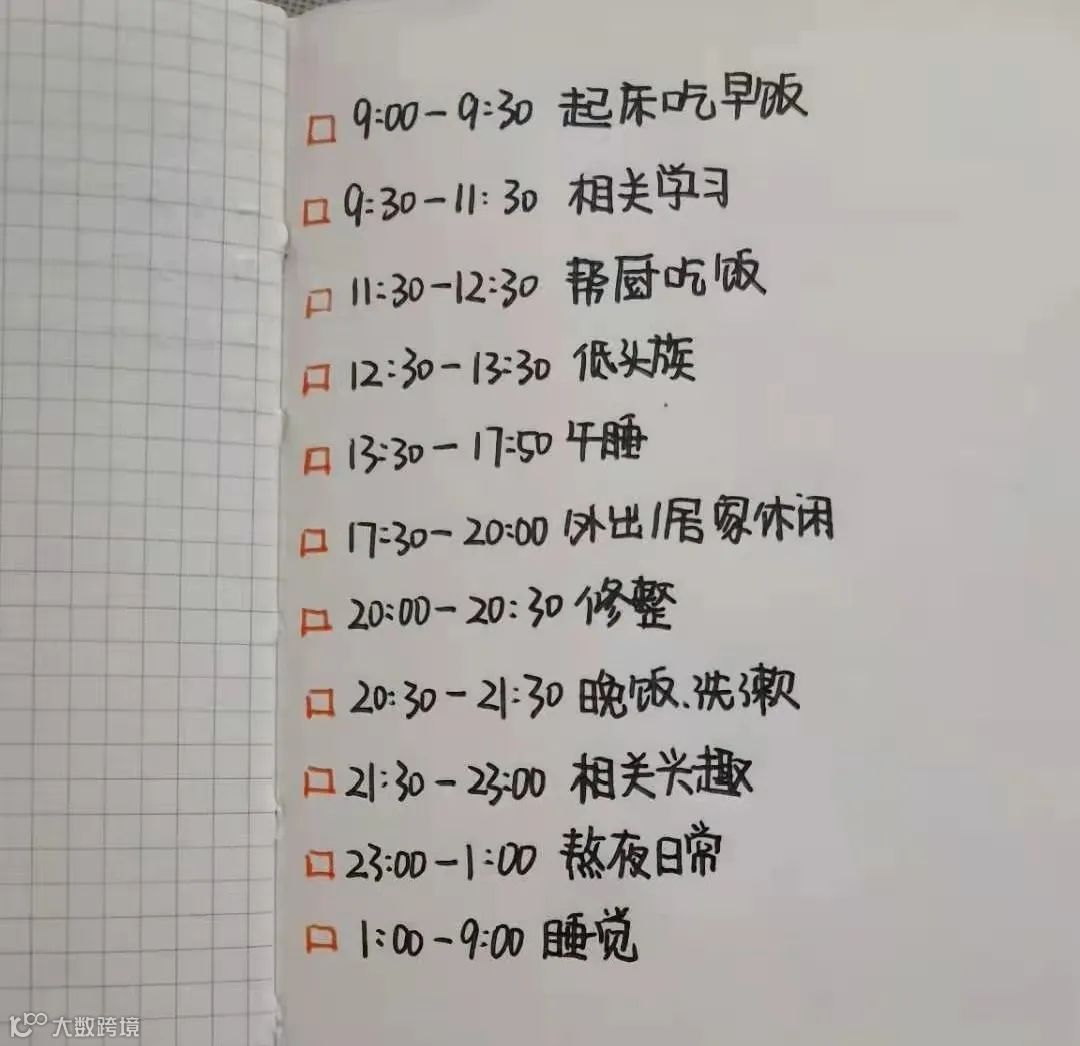 9:00-9:30 起床吃早饭
9:30-11:30 相关学习
11:30-12:30 帮厨吃饭
12:30-13:30 低头族
13:30-17:50 午睡
17:30-20:00 外出/居家休闲
20:00-20:30 修整
20:30-21:30 晚饭.洗漱
21:30-23:00 相关兴趣
23:00-1:00 熬夜日常
1:00-9:00 睡觉
大数跨境